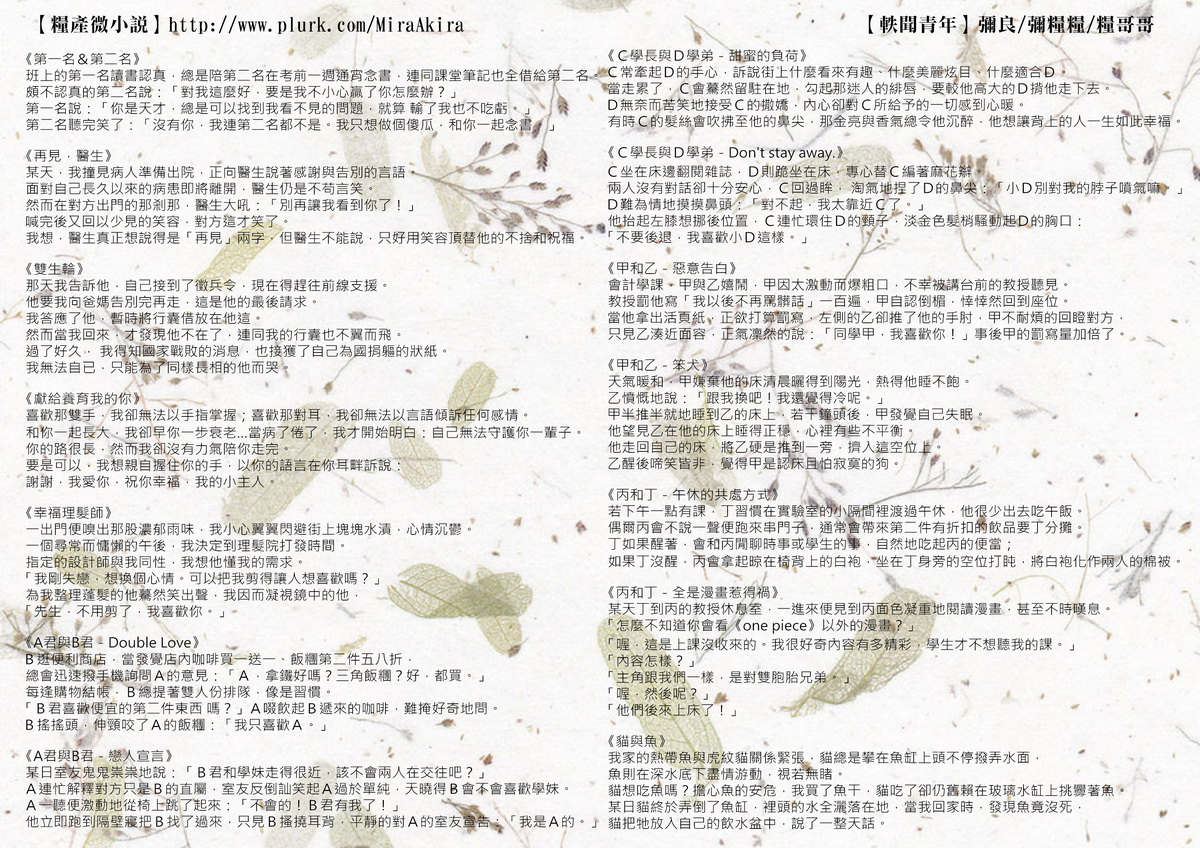 【糧產微小説】http://www.plurk.com/MiraAkira
【軼聞青年】彌良/彌糧糧/糧哥哥
《第一名&第二名》
班上的第一名讀書認真，總是陪第二名在考前一週通宵念書，連同課堂筆記也全借給第二名。
頗不認真的第二名說：「對我這麼好，要是我不小心贏了你怎麼辦？」
第一名說：「你是天才，總是可以找到我看不見的問題，就算 輸了我也不吃虧。」
第二名聽完笑了：「沒有你，我連第二名都不是。我只想做個傻瓜，和你一起念書。」
《再見．醫生》
某天，我撞見病人準備出院，正向醫生說著感謝與告別的言語。
面對自己長久以來的病患即將離開，醫生仍是不苟言笑。
然而在對方出門的那剎那，醫生大吼：「別再讓我看到你了！」
喊完後又回以少見的笑容，對方這才笑了。
我想，醫生真正想說得是「再見」兩字，但醫生不能說，只好用笑容頂替他的不捨和祝福。
《雙生輪》
那天我告訴他，自己接到了徵兵令，現在得趕往前線支援。
他要我向爸媽告別完再走，這是他的最後請求。
我答應了他，暫時將行囊借放在他這。
然而當我回來，才發現他不在了，連同我的行囊也不翼而飛。
過了好久，我得知國家戰敗的消息，也接獲了自己為國捐軀的狀紙。
我無法自已，只能為了同樣長相的他而哭。
《獻給養育我的你》
喜歡那雙手，我卻無法以手指掌握；喜歡那對耳，我卻無法以言語傾訴任何感情。
和你一起長大，我卻早你一步衰老...當病了倦了，我才開始明白：自己無法守護你一輩子。
你的路很長，然而我卻沒有力氣陪你走完。
要是可以，我想親自握住你的手，以你的語言在你耳畔訴說：
謝謝，我愛你，祝你幸福，我的小主人。
《幸福理髮師》
一出門便嗅出那股濃郁雨味，我小心翼翼閃避街上塊塊水漬，心情沉鬱。
一個尋常而慵懶的午後，我決定到理髮院打發時間。
指定的設計師與我同性，我想他懂我的需求。
「我剛失戀，想換個心情。可以把我剪得讓人想喜歡嗎？」
為我整理蓬髮的他驀然笑出聲，我因而凝視鏡中的他，
「先生，不用剪了，我喜歡你。」
《A君與B君 - Double Love》
Ｂ逛便利商店，當發覺店內咖啡買一送一、飯糰第二件五八折，
總會迅速撥手機詢問Ａ的意見：「Ａ，拿鐵好嗎？三角飯糰？好，都買。」
每逢購物結帳，Ｂ總提著雙人份排隊，像是習慣。
「Ｂ君喜歡便宜的第二件東西 嗎？」Ａ啜飲起Ｂ遞來的咖啡，難掩好奇地問。
Ｂ搖搖頭，伸頸咬了Ａ的飯糰：「我只喜歡Ａ。」
《A君與B君 - 戀人宣言》
某日室友鬼鬼祟祟地說：「Ｂ君和學妹走得很近，該不會兩人在交往吧？」
Ａ連忙解釋對方只是Ｂ的直屬，室友反倒訕笑起Ａ過於單純，天曉得Ｂ會不會喜歡學妹。
Ａ一聽便激動地從椅上跳了起來：「不會的！Ｂ君有我了！」
他立即跑到隔壁寢把Ｂ找了過來，只見Ｂ搔撓耳背，平靜的對Ａ的室友宣告：「我是Ａ的。」
《Ｃ學長與Ｄ學弟 - 甜蜜的負荷》
Ｃ常牽起Ｄ的手心，訴說街上什麼看來有趣、什麼美麗炫目、什麼適合Ｄ。
當走累了，Ｃ會驀然留駐在地，勾起那迷人的緋唇，要較他高大的Ｄ揹他走下去。
Ｄ無奈而苦笑地接受Ｃ的撒嬌，內心卻對Ｃ所給予的一切感到心暖。
有時Ｃ的髮絲會吹拂至他的鼻尖，那金亮與香氣總令他沉醉，他想讓背上的人一生如此幸福。
《Ｃ學長與Ｄ學弟 - Don't stay away.》
Ｃ坐在床邊翻閱雜誌，Ｄ則跪坐在床，專心替Ｃ編著麻花辮。
兩人沒有對話卻十分安心，Ｃ回過眸，淘氣地捏了Ｄ的鼻尖：「小Ｄ別對我的脖子噴氣嘛。」
Ｄ難為情地摸摸鼻頭：「對不起，我太靠近Ｃ了。」
他抬起左膝想挪後位置，Ｃ連忙環住Ｄ的頸子，淡金色髮梢騷動起Ｄ的胸口：
「不要後退，我喜歡小Ｄ這樣。」
《甲和乙 - 惡意告白》
會計學課，甲與乙嬉鬧，甲因太激動而爆粗口，不幸被講台前的教授聽見。
教授罰他寫「我以後不再罵髒話」一百遍，甲自認倒楣，悻悻然回到座位。
當他拿出活頁紙，正欲打算罰寫，左側的乙卻推了他的手肘，甲不耐煩的回瞪對方，
只見乙湊近面容，正氣凜然的說：「同學甲，我喜歡你！」事後甲的罰寫量加倍了。
《甲和乙 - 笨犬》
天氣暖和，甲嫌棄他的床清晨曬得到陽光，熱得他睡不飽。
乙憤慨地說：「跟我換吧！我還覺得冷呢。」
甲半推半就地睡到乙的床上，若干鐘頭後，甲發覺自己失眠。
他望見乙在他的床上睡得正穩，心裡有些不平衡。
他走回自己的床，將乙硬是推到一旁，擠入這空位上。
乙醒後啼笑皆非，覺得甲是認床且怕寂寞的狗。
《丙和丁 - 午休的共處方式》
若下午一點有課，丁習慣在實驗室的小隔間裡渡過午休，他很少出去吃午飯。
偶爾丙會不說一聲便跑來串門子，通常會帶來第二件有折扣的飲品要丁分攤。
丁如果醒著，會和丙閒聊時事或學生的事，自然地吃起丙的便當；
如果丁沒醒，丙會拿起晾在椅背上的白袍，坐在丁身旁的空位打盹，將白袍化作兩人的棉被。
《丙和丁 - 全是漫畫惹得禍》
某天丁到丙的教授休息室，一進來便見到丙面色凝重地閱讀漫畫，甚至不時嘆息。
「怎麼不知道你會看《one piece》以外的漫畫？」
「喔，這是上課沒收來的。我很好奇內容有多精彩，學生才不想聽我的課。」
「內容怎樣？」
「主角跟我們一樣，是對雙胞胎兄弟。」
「喔，然後呢？」
「他們後來上床了！」
《貓與魚》
我家的熱帶魚與虎紋貓關係緊張，貓總是攀在魚缸上頭不停撥弄水面，
魚則在深水底下盡情游動，視若無睹。
貓想吃魚嗎？擔心魚的安危，我買了魚干，貓吃了卻仍舊賴在玻璃水缸上挑釁著魚。
某日貓終於弄倒了魚缸，裡頭的水全灑落在地，當我回家時，發現魚竟沒死，
貓把牠放入自己的飲水盆中，說了一整天話。